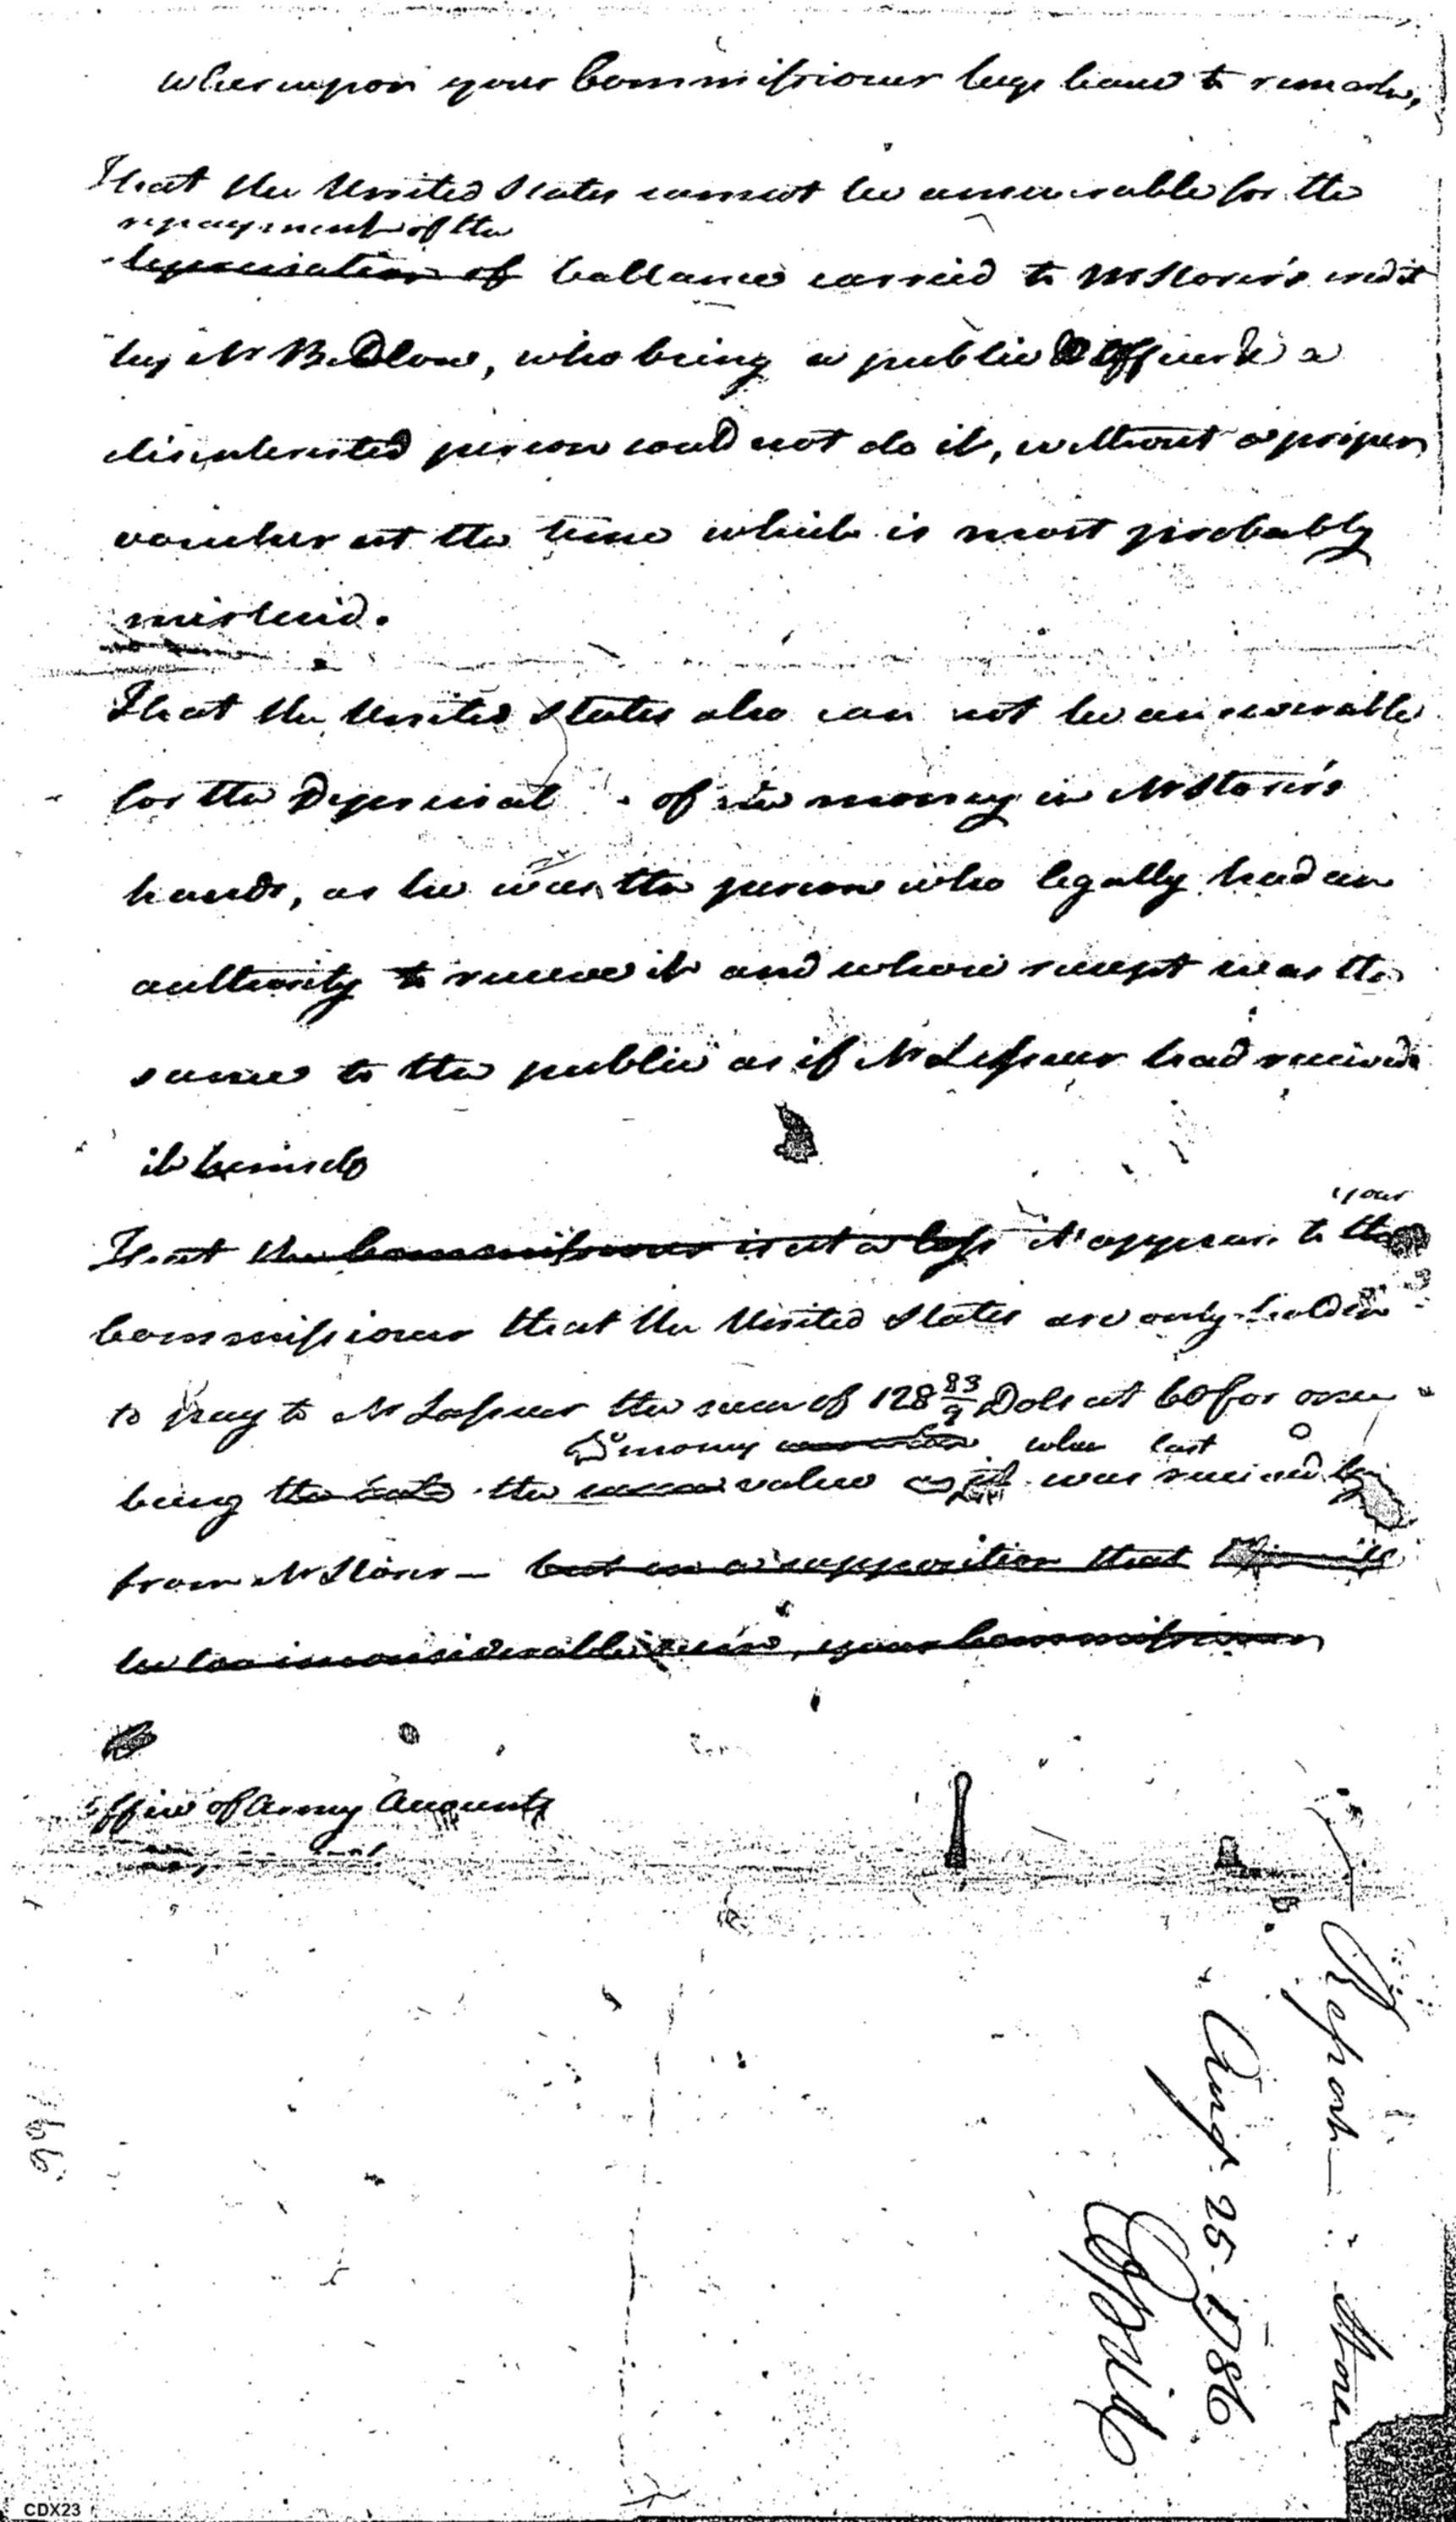 Whereupon your Commissioner begs leave to remark,
That the United States cannot be answerable for the
repayment of the
depreciation of ballance carried to Mr Storer's credit
by Mr Bedlow, who being a public Officer & a
disinterested person could not do it, without a proper
voucher at the time which is most probably
mislaid.
That the United States also can not be answerable
for the Depreciat of the money in Mr Storer's
hands, as he was the person who legally had an
authority to receive it and whose receipt was the
same to the public as if Mr Lasseur had received
it himself
your
That the Commissioner is at a loss it appears to the
Commissioner that the United States are only holden
to pay to Mr Lasseur the sum of 128 83/9 Dols at 60 for one
money when last
being the the value it was received by
from Mr Storer — but on a supposition that
be too inconsiderable sum, your Commissioner
Office of Army Accounts
Report Storer
Aug. 25. 1786
1786
CDX23